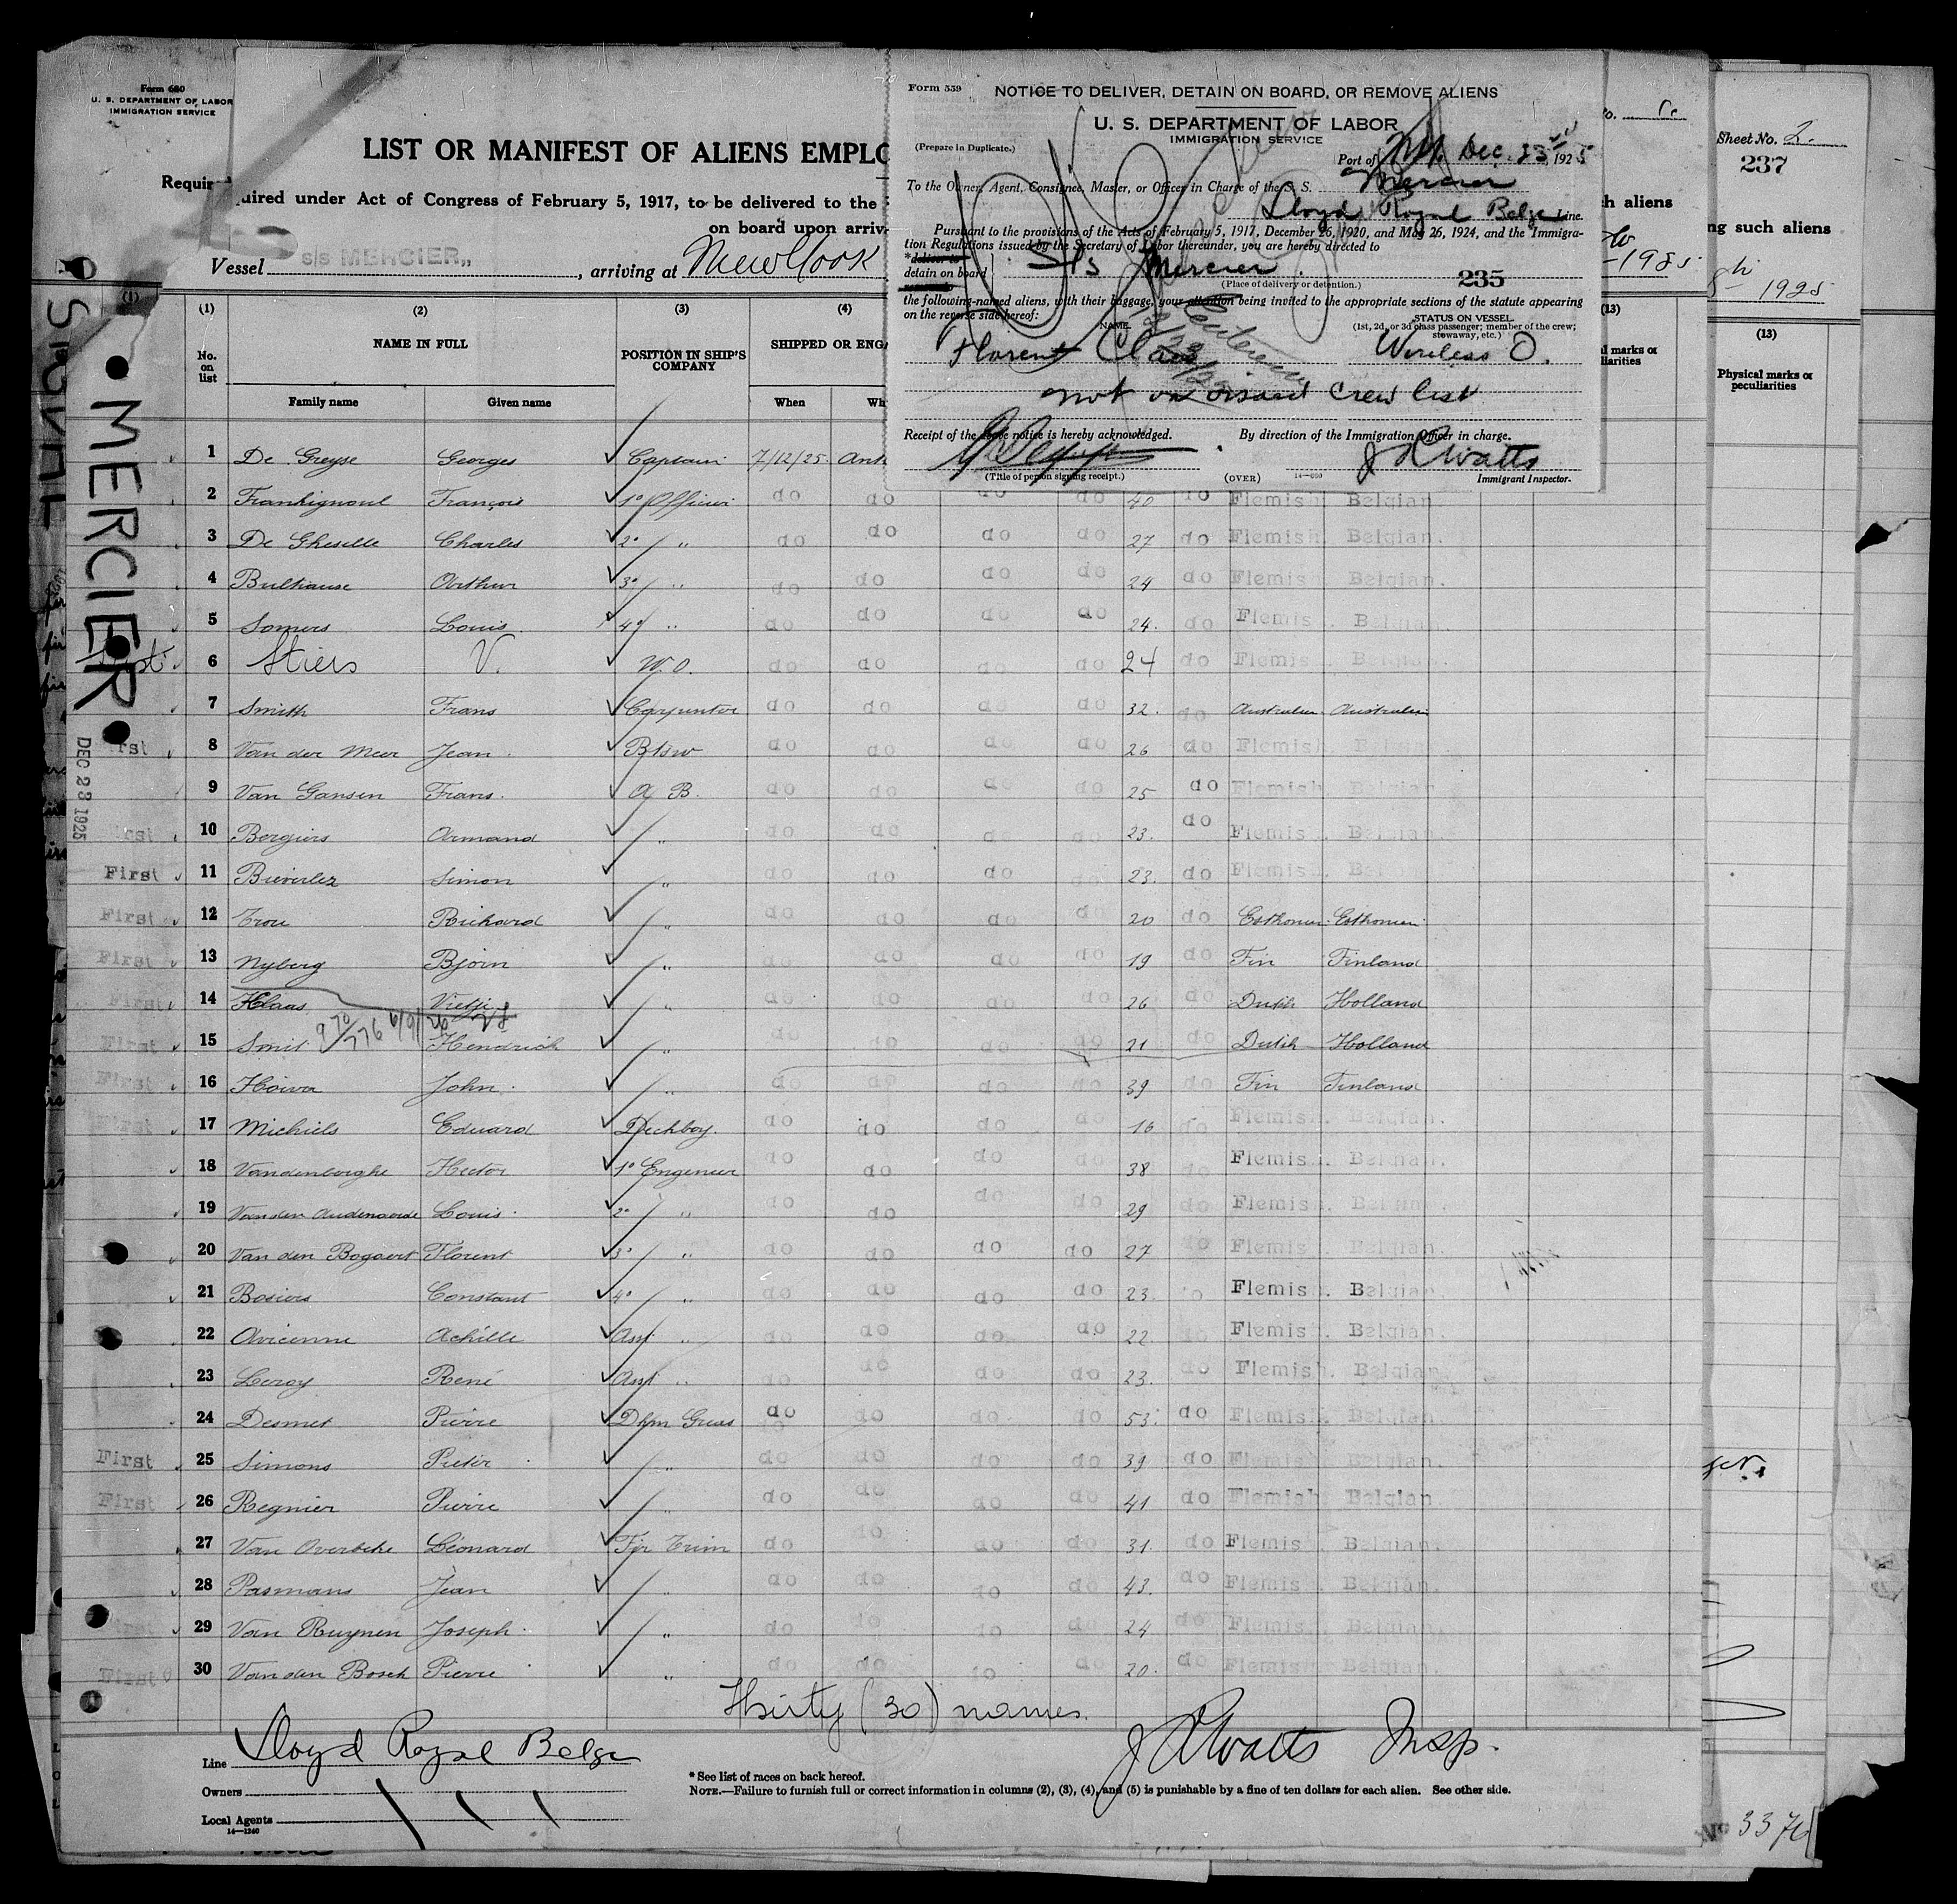 Form 680
U. S. DEPARTMENT OF LABOR
IMMIGRATION SERVICE
LIST OR MANIFEST OF ALIENS EMPLO
Requir
uired under Act of Congress of February 5, 1917, to be delivered to the
on board upon arriv
Vessel s/s MERCIER, arriving at New York
Form 559
NOTICE TO DELIVER, DETAIN ON BOARD, OR REMOVE ALIENS
U. S. DEPARTMENT OF LABOR
IMMIGRATION SERVICE
(Prepare in Duplicate.)
Port of NY. Dec. 23rd, 1925
To the Owner, Agent, Consignee, Master, or Officer in Charge of the S. S. Mercier
Lloyd Royal Belge Line.
Pursuant to the provisions of the Acts of February 5, 1917, December 26, 1920, and May 26, 1924, and the Immigra-
tion Regulations issued by the Secretary of Labor thereunder, you are hereby directed to
*deliver to
detain on board S/s Mercier.
235
(Place of delivery or detention.)
the following-named aliens, with their baggage, your attention being invited to the appropriate sections of the statute appearing
on the reverse side hereof:
NAME.
STATUS ON VESSEL
(1st, 2d, or 3d class passenger; member of the crew;
stowaway, etc.)
Florent Claes Wireless O.
not on visaed crew list
Receipt of the above notice is hereby acknowledged.
By direction of the Immigration Officer in charge.
J R Watts
(Title of person signing receipt.)
(OVER)
14—690
Immigrant Inspector.
Sheet No. 2.
237
h aliens
ng such aliens
1925
1925
(13)
d marks or
liarities
(13)
Physical marks or
peculiarities
MERCIER
DEC 23 1925
(1) (2) (3) (4)
No. on list
NAME IN FULL
POSITION IN SHIP'S COMPANY
SHIPPED OR ENGA
Family name Given name When Wh
1 De Greyse Georges Captain 7/12/25 Ant
2 Frankignoul François 1° Officier do do do do 40 do Flemish Belgian
3 De Gheselle Charles 2° " do do do do 27 do Flemish Belgian.
4 Bulthause Arthur 3° " do do do do 24 do Flemis Belgian.
5 Somers Louis 4° " do do do do 24. do Flemis. Belgian.
6 Stiers V. W.O. do do do do 24 do Flemis. Belgian.
7 Smith Frans Carpenter do do do do 32. do Australian Australian
8 Van der Meer Jean Btsw do do do do 26 do Flemish Belgian
First 9 Van Gansen Frans. A B. do do do do 25 do Flemish Belgian
First 10 Bergiers Armand " do do do do 23. do Flemis. Belgian.
First 11 Bieverlez Simon " do do do do 23. do Flemish. Belgian
First 12 Trou Richard " do do do do 20 do Esthonian Esthonian
First 13 Nyberg Bjorn " do do do do 19 do Fin Finland
First 14 Klaas Vietji " do do do do 26 do Dutch Holland
970/776
First 15 Smit Hendrich " do do do do 21 do Dutch Holland
First 16 Hoiva John " do do do do 39 do Fin Finland
First 17 Michiels Eduard Deckboy. do do do do 16 do Flemis. Belgian.
18 Vandenberghe Hector 1° Engeneer do do do 38 do Flemish. Belgian.
19 Van den Audenaerde Louis 2° " do do do do 29 do Flemis. Belgian.
20 Van den Bogaert Florent 3° " do do do do 27 do Flemis Belgian.
21 Bosiers Constant 4° " do do do do 23. do Flemis. Belgian.
22 Avicenne Achille Asst " do do do do 22 Flemis. Belgian.
23 Leroy René Asst " do do do do 23. do Flemish Belgian
24 Desmet Pierre Dkm Greas do do do do 53. do Flemis. Belgian.
First 25 Simons Pieter " do do do do 39 do Flemis. Belgian.
First 26 Regnier Pierre " do do do do 41 do Flemish Belgian.
27 Van Overbeke Léonard Fir Trim do do do do 31. do Flemis. Belgian.
28 Pasmans Jean " do do do do 43. do Flemis. Belgian.
First 29 Van Ruymen Joseph " do do do do 24 do Flemis. Belgian.
First 30 Van den Bosch Pierre " do do do do 20. do Flemish Belgian.
Thirty (30) names.
Line Lloyd Royal Belge
J R Watts Insp.
Owners
Local Agents
14—1240
* See list of races on back hereof.
NOTE.—Failure to furnish full or correct information in columns (2), (3), (4), and (5) is punishable by a fine of ten dollars for each alien. See other side.
3376